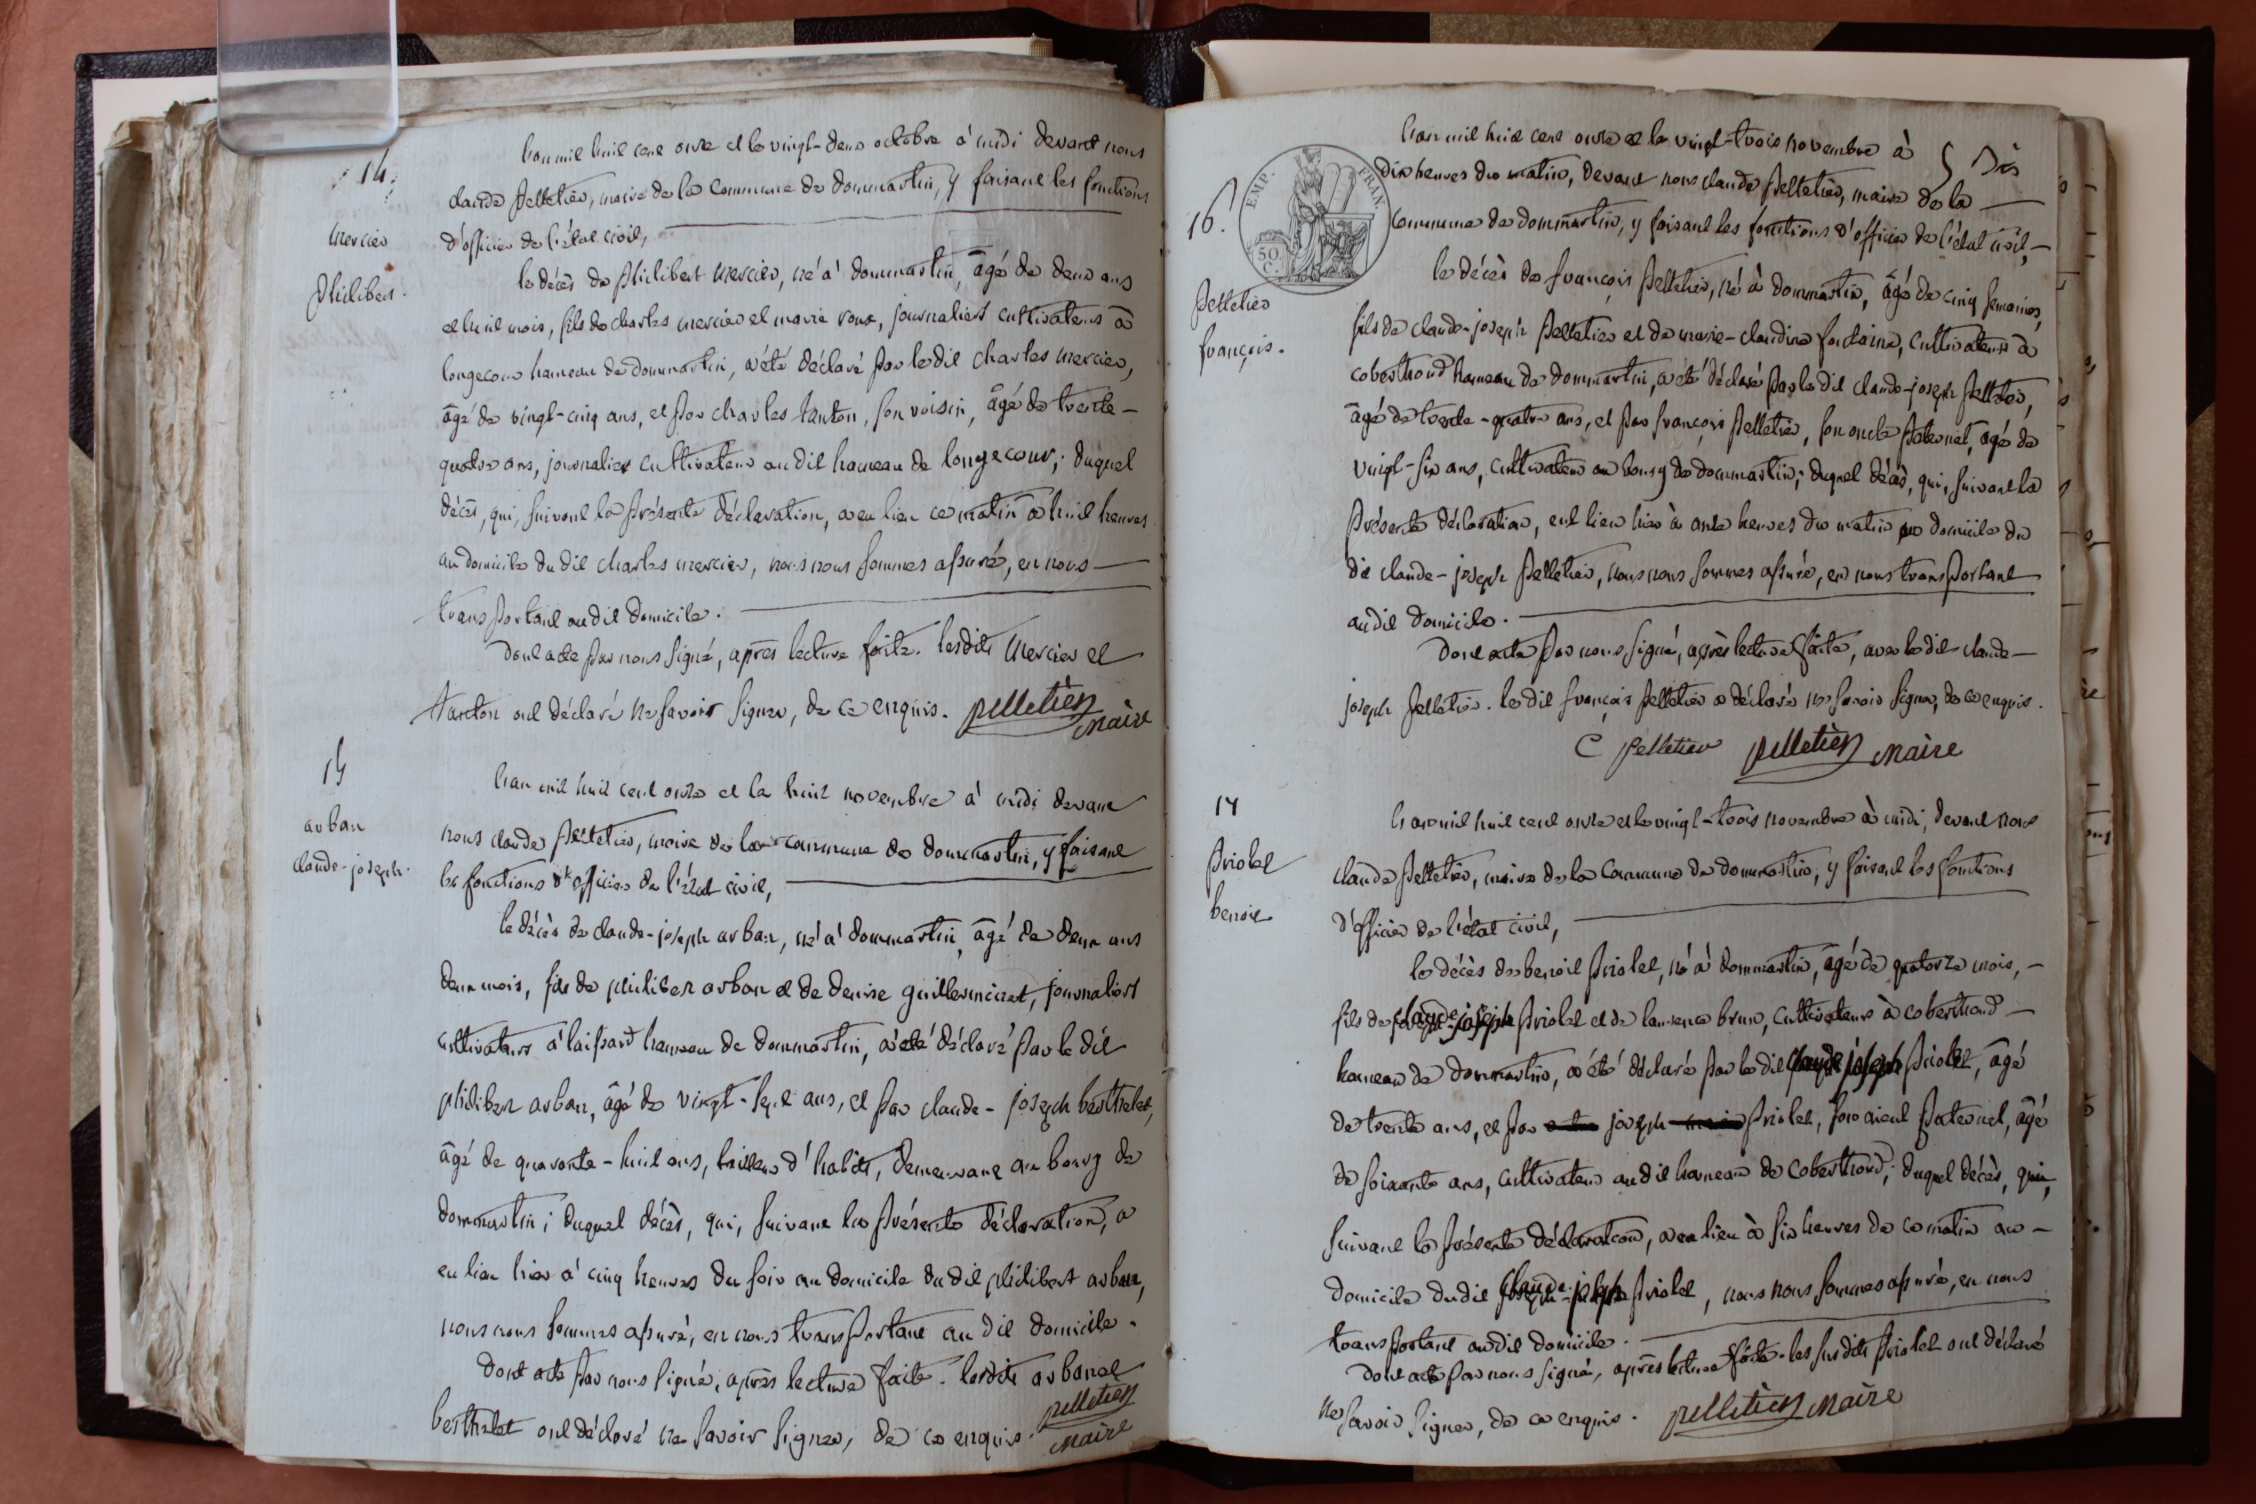 14.
mercier
philibert.
L'an mil huit cent onze et le vingt-deux octobre à midi devant nous
claude Pelletier, maire de la commune de dommartin, y faisant les fonctions
d'officier de l'état civil,
le décès de Philibert mercier, né à dommartin, âgé de deux ans
et huit mois, fils de charles mercier et marie roux, journaliers cultivateurs à
longecour hameau de dommartin, a été déclaré par le dit charles mercier,
âgé de vingt-cinq ans, et par charles tanton, son voisin, âgé de trente-
quatre ans, journalier cultivateur au dit hameau de longecour; duquel
décès, qui, suivant la présente déclaration, a eu lieu ce matin à huit heures
au domicile du dit charles mercier, nous nous sommes assuré, en nous
transportant au dit domicile.
dont acte par nous signé, après lecture faite. lesdits mercier et
tanton ont déclaré ne savoir signer, de ce enquis. pelletier
maire
15
arban
claude-joseph.
L'an mil huit cent onze et le huit novembre à midi devant
nous claude Pelletier, maire de la commune de dommartin, y faisant
les fonctions d'officier de l'état civil,
le décès de claude-joseph arban, né à dommartin, âgé de deux ans
deux mois, fils de philibert arban et de denise guillerminet, journaliers
cultivateurs à laissard hameau de dommartin, a été déclaré par le dit
philibert arban, âgé de vingt-sept ans, et par claude-joseph berthelet,
âgé de quarante-huit ans, tailleur d'habits, demeurant au bourg de
dommartin; duquel décès, qui, suivant la présente déclaration, a
eu lieu hier à cinq heures du soir au domicile du dit philibert arban,
nous nous sommes assuré, en nous transportant au dit domicile.
dont acte par nous signé, après lecture faite. lesdits arban et
berthelet ont déclaré ne savoir signer, de ce enquis. pelletier
maire
EMP. FRAN
50
C.
16.
Pelletier
françois.
L'an mil huit cent onze et le vingt-trois novembre à
dix heures du matin, devant nous claude Pelletier, maire de la
commune de dommartin, y faisant les fonctions d'officier de l'état civil,
le décès de françois Pelletier, né à dommartin, âgé de cinq semaines,
fils de claude-joseph Pelletier et de marie-claudine fontaine, cultivateurs à
coberthoud hameau de dommartin, a été déclaré par le dit claude-joseph Pelletier,
âgé de trente-quatre ans, et par françois Pelletier, son oncle paternel, âgé de
vingt-six ans, cultivateur au bourg de dommartin; duquel décès, qui, suivant la
présente déclaration, eut lieu hier à onze heures du matin au domicile du
dit claude-joseph Pelletier, nous nous sommes assuré, en nous transportant
au dit domicile.
dont acte par nous signé, après lecture faite, avec le dit claude-
joseph Pelletier. le dit françois Pelletier a déclaré ne savoir signer, de ce enquis.
C pelletier pelletier maire
17
Priolet
benoit
L'an mil huit cent onze et le vingt-trois novembre à midi, devant nous
claude Pelletier, maire de la commune de dommartin, y faisant les fonctions
d'officier de l'état civil,
le décès de benoit Priolet, né à dommartin, âgé de quatorze mois,
fils de claude joseph Priolet et de laurence brun, cultivateurs à coberthoud
hameau de dommartin, a été déclaré par le dit claude joseph Priolet, âgé
de trente ans, et par joseph Priolet, son aieul paternel, âgé
de soixante ans, cultivateur au dit hameau de coberthoud; duquel décès, qui,
suivant la présente déclaration, a eu lieu à six heures de ce matin au
domicile du dit claude-joseph Priolet, nous nous sommes assuré, en nous
transportant au dit domicile.
dont acte par nous signé, après lecture faite. les susdits Priolet ont déclaré
ne savoir signer, de ce enquis. pelletier maire